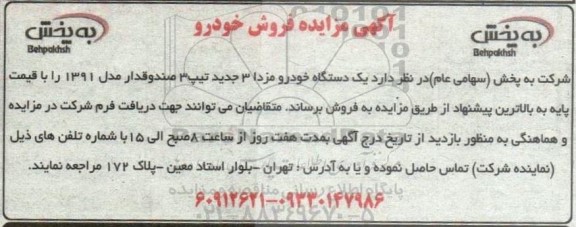 آگهی مزایده فروش خودرو
به پخش
Behpakhsh
به پخش
Behpakhsh
شرکت به پخش (سهامی عام)در نظر دارد یک دستگاه خودرو مزدا ۳ جدید تیپ۳ صندوقدار مدل ۱۳۹۱ را با قیمت
پایه به بالاترین پیشنهاد از طریق مزایده به فروش برساند. متقاضیان می توانند جهت دریافت فرم شرکت در مزایده
و هماهنگی به منظور بازدید از تاریخ درج آگهی بمدت هفت روز از ساعت ۸صبح الی ۱۵با شماره تلفن های ذیل
(نماینده شرکت) تماس حاصل نموده و یا به آدرس : تهران -بلوار استاد معین -پلاک ۱۷۲ مراجعه نمایند.
۶۰۹۱۲۶۲۱-۰۹۳۳۰۱۴۷۹۸۶
پایگاه اطلاع رسانی مناقصه و مزایده
۰۲۱-۸۸۳۴۹۶۷۰-۵